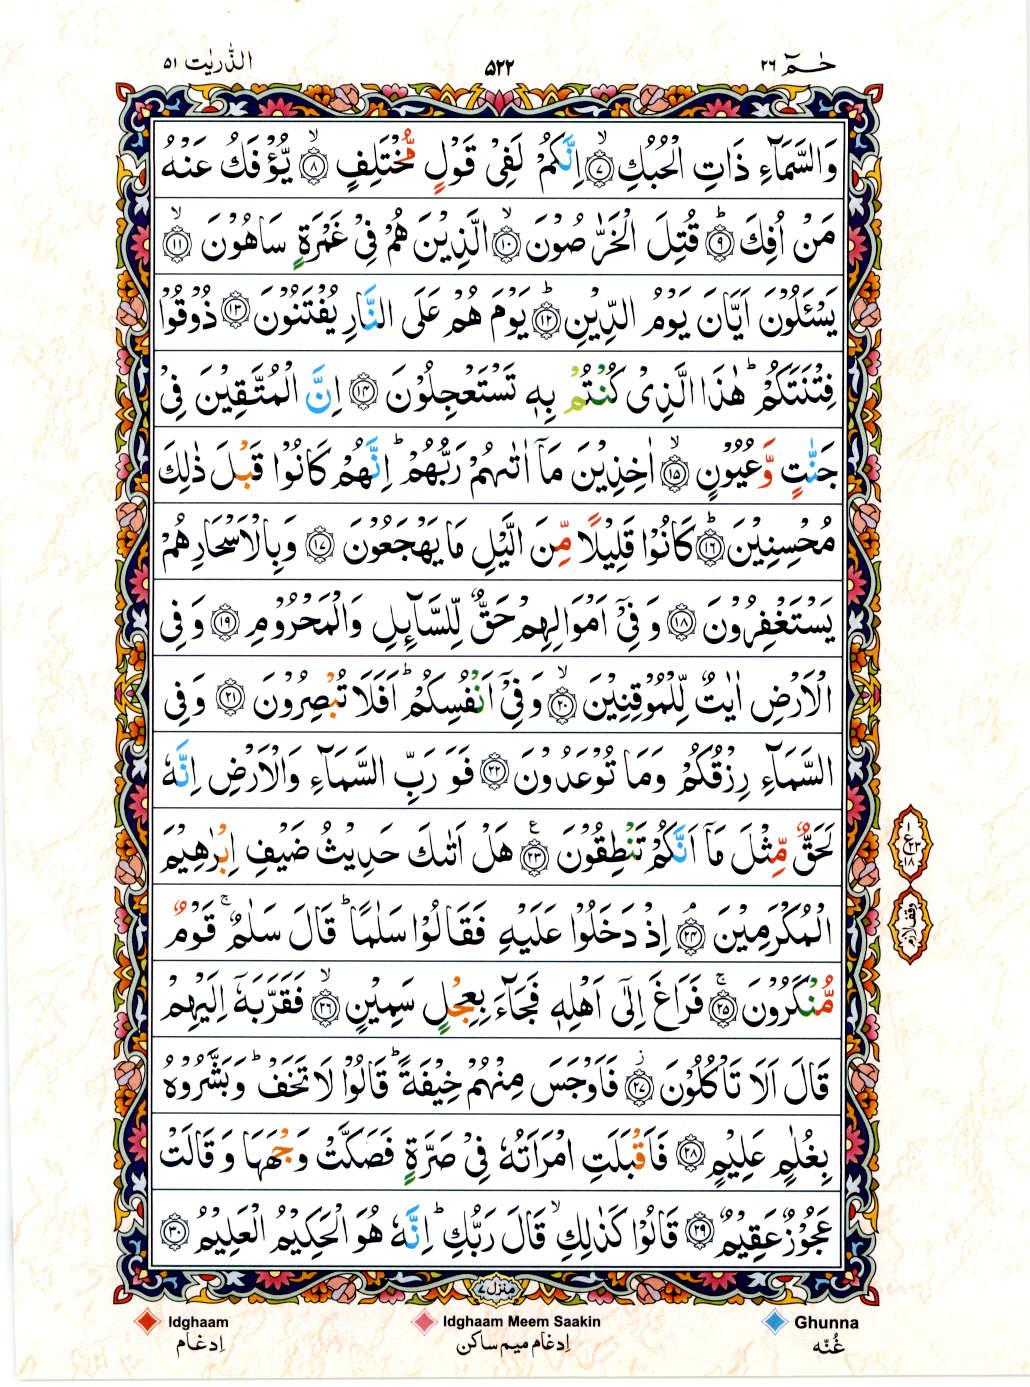 حٰمٓ ٢٦
٥٢٢
الذّٰريٰت ٥١
وَالسَّمَآءِ ذَاتِ الْحُبُكِ ۙ‏﴿۷﴾ اِنَّكُمْ لَفِىْ قَوْلٍ مُّخْتَلِفٍ ۙ‏﴿۸﴾ يُّؤْفَكُ عَنْهُ
مَنْ اُفِكَ ؕ‏﴿۹﴾ قُتِلَ الْخَرّٰصُوْنَ ۙ‏﴿۱۰﴾ الَّذِيْنَ هُمْ فِىْ غَمْرَةٍ سَاهُوْنَ ۙ‏﴿۱۱﴾
يَسْـَٔلُوْنَ اَيَّانَ يَوْمُ الدِّيْنِ ؕ‏﴿۱۲﴾ يَوْمَ هُمْ عَلَى النَّارِ يُفْتَنُوْنَ ﴿۱۳﴾ ذُوْقُوْا
فِتْنَتَكُمْ ؕ هٰذَا الَّذِىْ كُنْتُمْ بِهٖ تَسْتَعْجِلُوْنَ ﴿۱۴﴾ اِنَّ الْمُتَّقِيْنَ فِىْ
جَنّٰتٍ وَّعُيُوْنٍ ۙ‏﴿۱۵﴾ اٰخِذِيْنَ مَاۤ اٰتٰٮهُمْ رَبُّهُمْ ؕ اِنَّهُمْ كَانُوْا قَبْلَ ذٰلِكَ
مُحْسِنِيْنَ ؕ‏﴿۱۶﴾ كَانُوْا قَلِيْلًا مِّنَ الَّيْلِ مَا يَهْجَعُوْنَ ﴿۱۷﴾ وَبِالْاَسْحَارِ هُمْ
يَسْتَغْفِرُوْنَ ﴿۱۸﴾ وَفِىْۤ اَمْوَالِهِمْ حَقٌّ لِّلسَّآئِلِ وَالْمَحْرُوْمِ ﴿۱۹﴾ وَفِى
الْاَرْضِ اٰيٰتٌ لِّلْمُوْقِنِيْنَ ۙ‏﴿۲۰﴾ وَفِىْۤ اَنْفُسِكُمْ ؕ اَفَلَا تُبْصِرُوْنَ ﴿۲۱﴾ وَفِى
السَّمَآءِ رِزْقُكُمْ وَمَا تُوْعَدُوْنَ ﴿۲۲﴾ فَوَ رَبِّ السَّمَآءِ وَالْاَرْضِ اِنَّهٗ
لَحَقٌّ مِّثْلَ مَاۤ اَنَّكُمْ تَنْطِقُوْنَ ﴿۲۳﴾ هَلْ اَتٰٮكَ حَدِيْثُ ضَيْفِ اِبْرٰهِيْمَ
الْمُكْرَمِيْنَ ۘ‏﴿۲۴﴾ اِذْ دَخَلُوْا عَلَيْهِ فَقَالُوْا سَلٰمًا ؕ قَالَ سَلٰمٌ ۚ قَوْمٌ
مُّنْكَرُوْنَ ۚ‏﴿۲۵﴾ فَرَاغَ اِلٰٓى اَهْلِهٖ فَجَآءَ بِعِجْلٍ سَمِيْنٍ ۙ‏﴿۲۶﴾ فَقَرَّبَهٗۤ اِلَيْهِمْ
قَالَ اَلَا تَاْكُلُوْنَ ﴿۲۷﴾ فَاَوْجَسَ مِنْهُمْ خِيْفَةً ؕ قَالُوْا لَا تَخَفْ ؕ وَبَشَّرُوْهُ
بِغُلٰمٍ عَلِيْمٍ ﴿۲۸﴾ فَاَقْبَلَتِ امْرَاَتُهٗ فِىْ صَرَّةٍ فَصَكَّتْ وَجْهَهَا وَقَالَتْ
عَجُوْزٌ عَقِيْمٌ ﴿۲۹﴾ قَالُوْا كَذٰلِكِ ۙ قَالَ رَبُّكِ ؕ اِنَّهٗ هُوَ الْحَكِيْمُ الْعَلِيْمُ ﴿۳۰﴾
١
ع ٢٣
١٨
وقف لازم
منزل ٧
Idghaam
اِدغام
Idghaam Meem Saakin
اِدغام میم ساکن
Ghunna
غُنّه